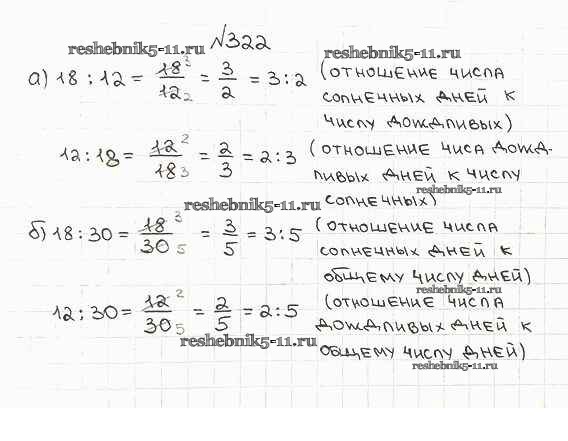 №322
reshebnik5-11.ru reshebnik5-11.ru
а) 18 : 12 = 18³/12₂ = 3/2 = 3:2 (отношение числа
солнечных дней к
числу дождливых)
12:18 = 12²/18₃ = 2/3 = 2:3 (отношение чиса дожд-
ливых дней к числу
reshebnik5-11.ru
солнечных)
reshebnik5-11.ru
б) 18:30 = 18³/30₅ = 3/5 = 3:5 (отношение числа
солнечных дней к
общему числу дней)
reshebnik5-11.ru
12:30 = 12²/30₅ = 2/5 = 2:5 (отношение числа
дождливых дней к
reshebnik5-11.ru
общему числу дней)
reshebnik5-11.ru